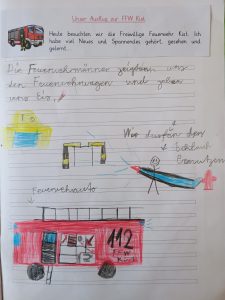 Unser Ausflug zur FFW Kist
Heute besuchten wir die Freiwillige Feuerwehr Kist. Ich
habe viel Neues und Spannendes gehört, gesehen und
gelernt.
Die Feuerwehrmänner zeigten uns
den Feuerwehrwagen und gaben
uns Eis.
Wir durften den
Schlauch
benutzen
Feuerwehrauto
112
FFW
Kist